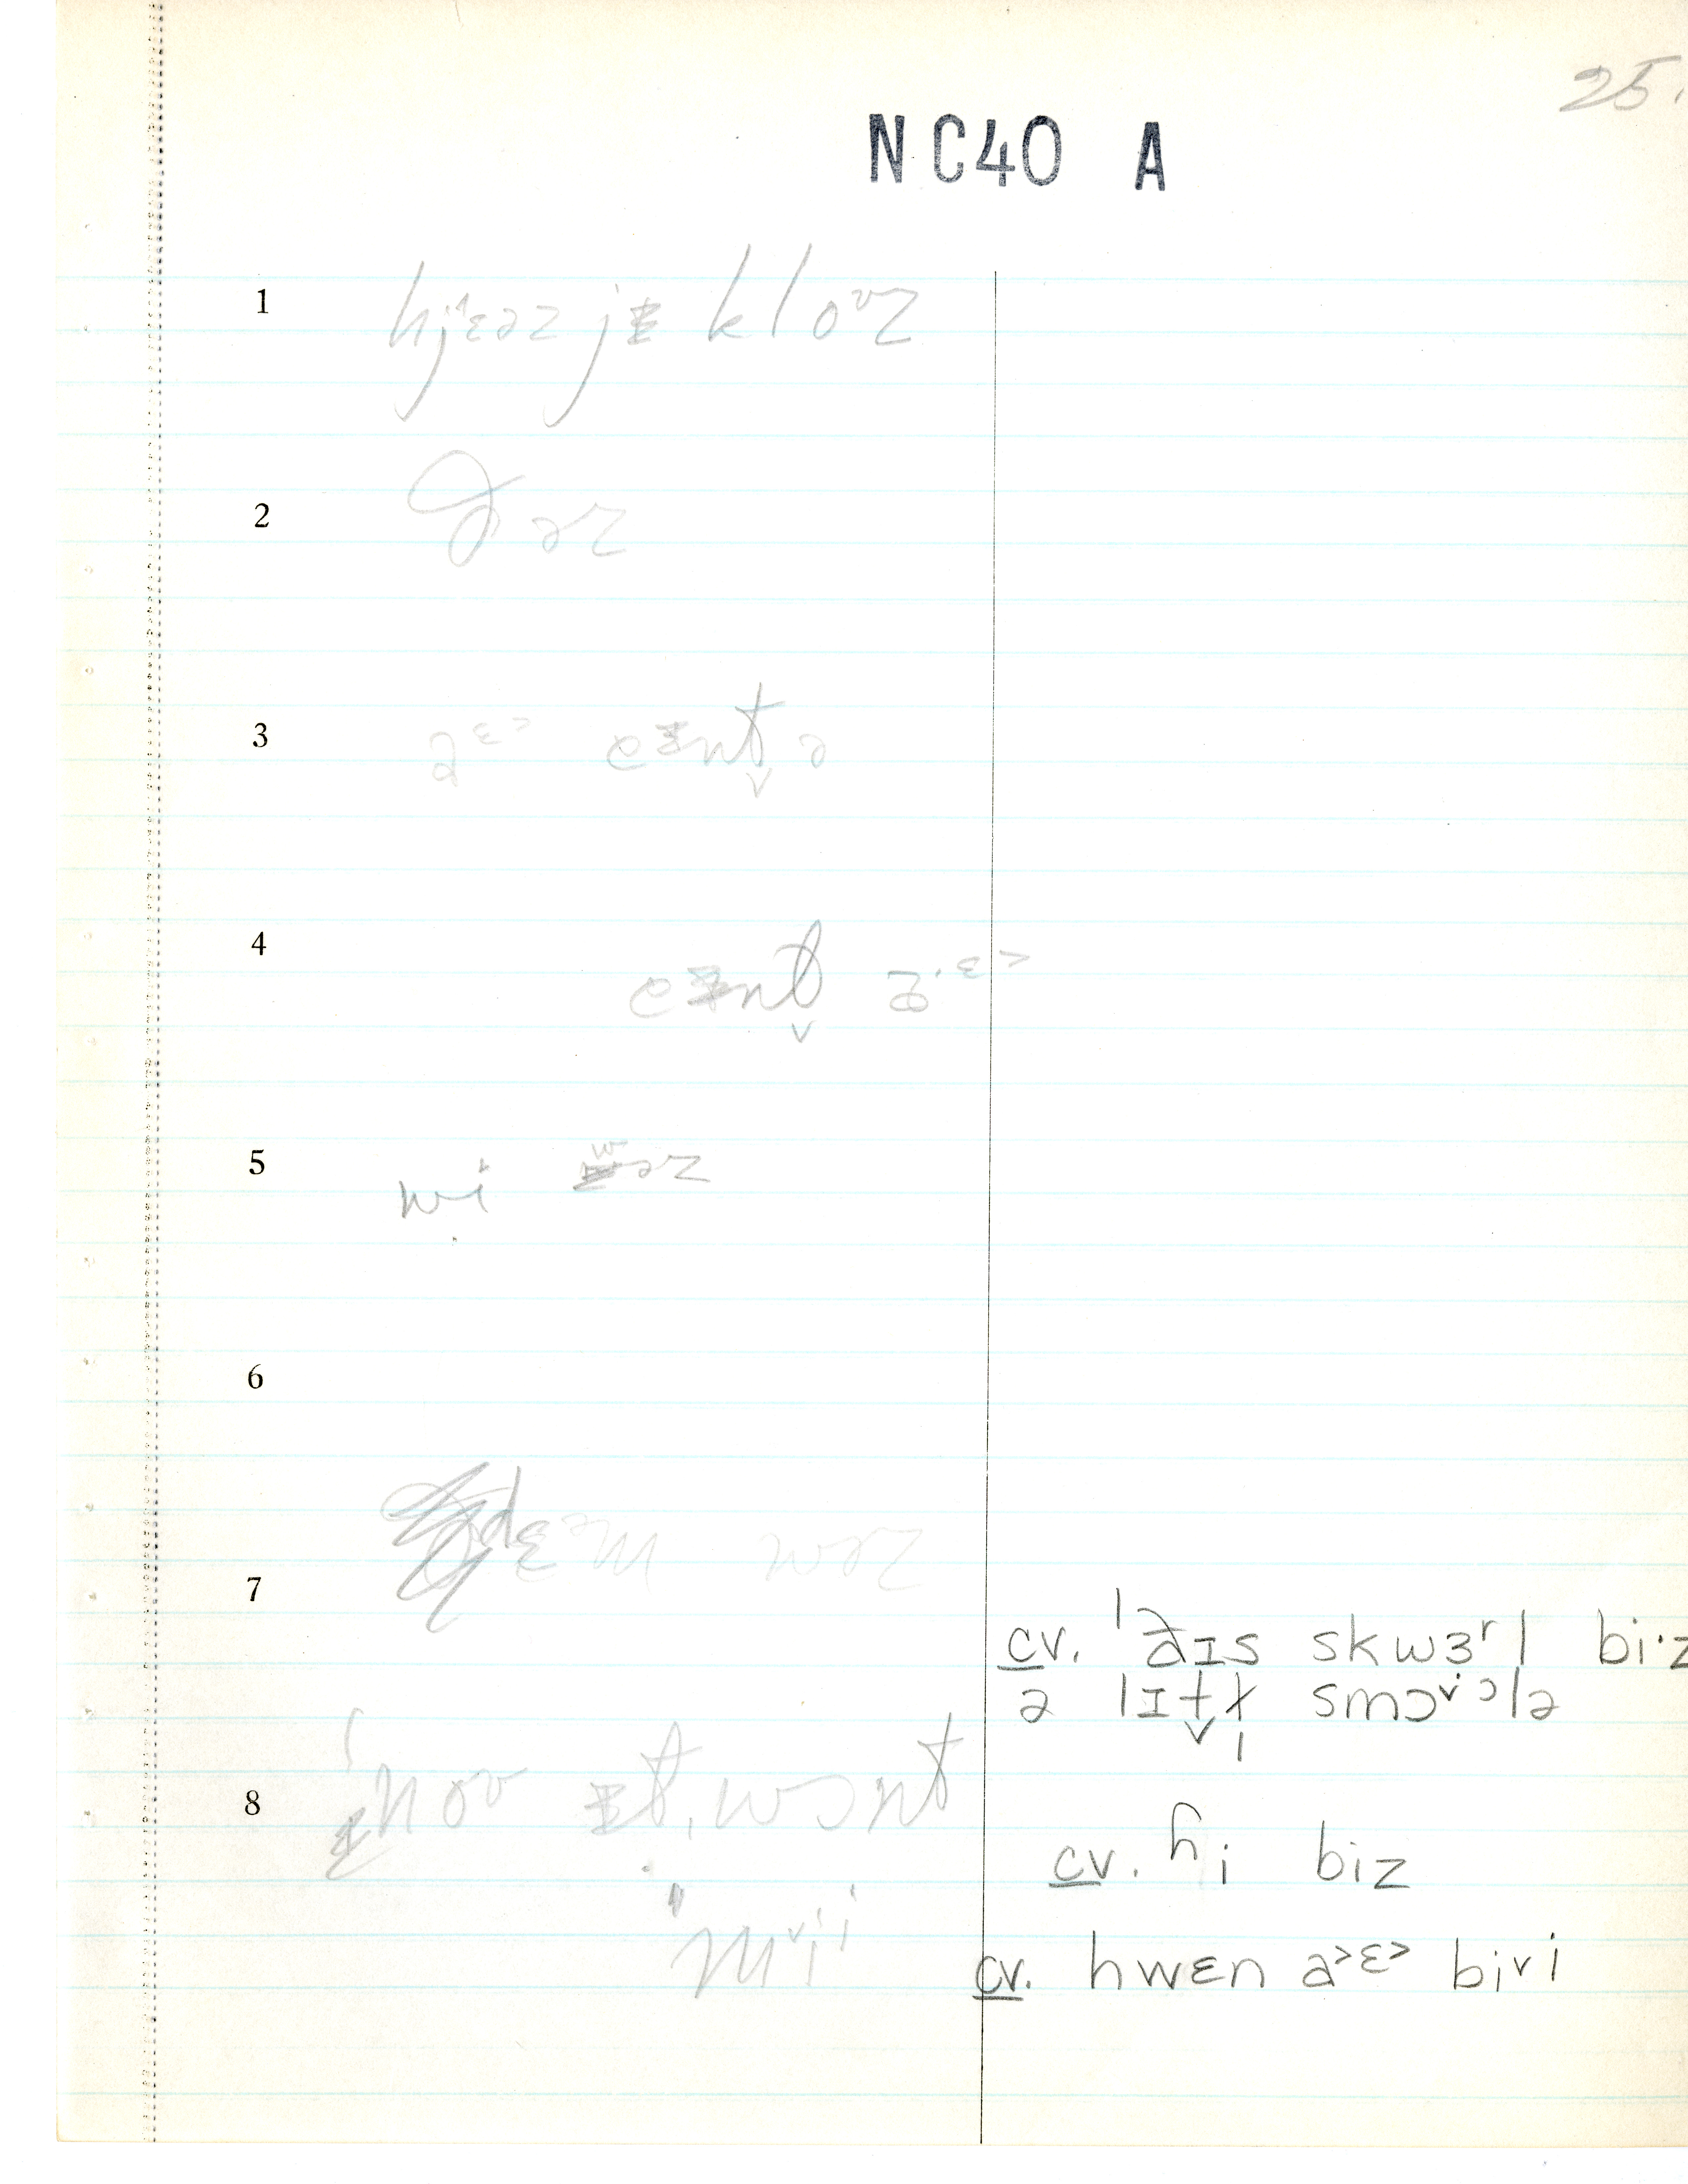 25.
NC40 A
1 hjɛəz jɨ kloʊz
2 ðəz
3 aᵋ˃ eɨnt̬ ə
4 eɨnt̬ a·ᵋ˃
5 wi wəz
6
7 dɛᵊm wəz
cv. ˈðɪs skwɜʳl bi·z
ə lɪt̬l̩ smɔ˅ɔlə
8 noʊ ɨt, wɔnt
mi˅i
cv. hi biz
cv. hwɛn a˃ɛ˃ bi˅i